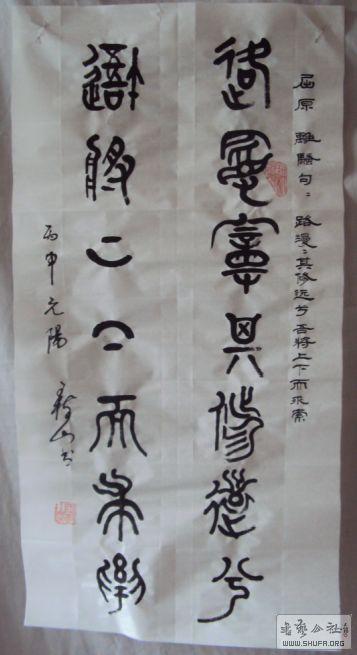 屈原 離騷句：路漫〻其修远兮吾将上下而求索
路曼其修遠兮
吾將上下而求索
丙申元陽山书
书艺公社
WWW.SHUFA.ORG